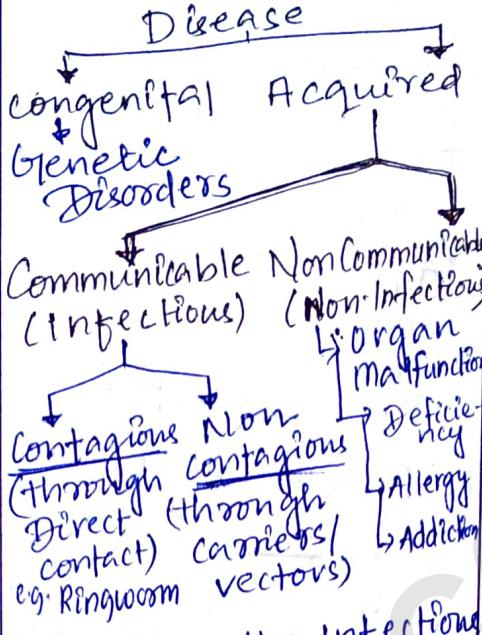 Disease
Congenital Acquired
Genetic
Disorders
Communicable
(Infectious)
Non Communicable
(Non-Infectious
organ
malfunction
Deficie-
ncy
Allergy
Addiction
Contagious
(through
Direct
contact)
e.g. Ringworm
Non
contagious
(through
carriers/
vectors)